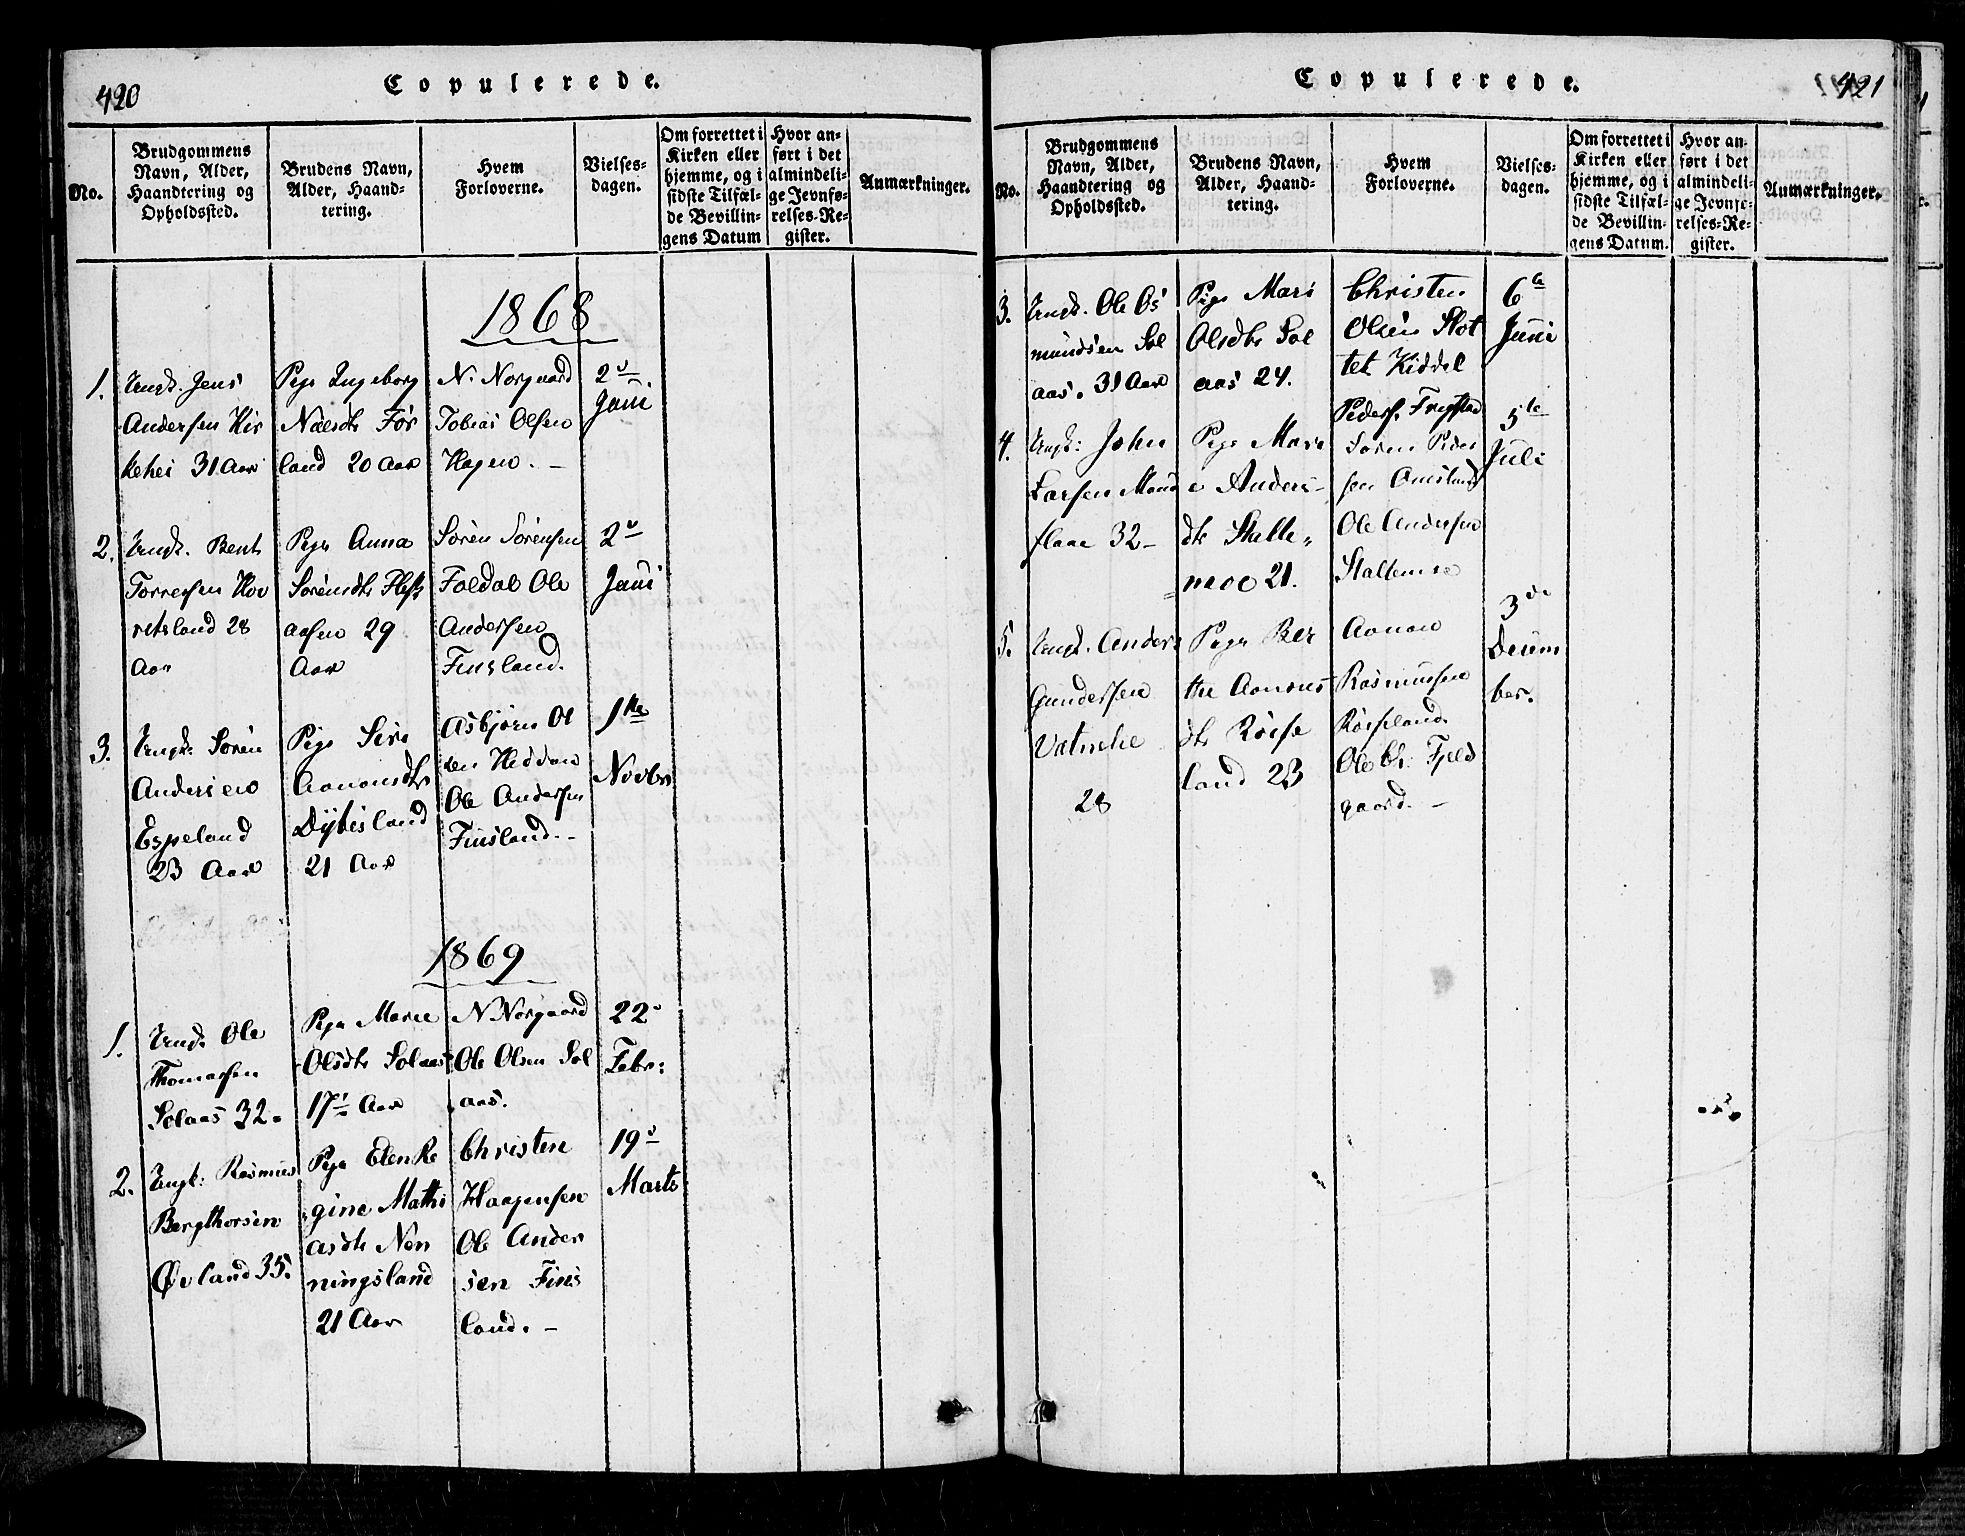 420
Copulerede.
No.
Brudgommens
Navn, Alder,
Haandtering og
Opholdssted.
Brudens Navn,
Alder, Haand-
tering.
Hvem
Forloverne.
Vielses-
dagen.
Om forrettet i
Kirken eller
hjemme, og i
sidste Tilfæl-
de Bevillin-
gens Datum
Hvor an-
ført i det
almindeli-
ge Jevnfø-
relses-Re-
gister.
Anmærkninger.
1868
1.
Ungk. Jens
Andersen Kir
kehei 31 Aar
Pige Ingeborg
Nælsdtr Før
land 20 Aar
N. Norgaard
Tobias Olsen
Hagen. –
2
Juni
2.
Ungk. Bent
Torresen Hov
retsland 28
Aar
Pige Anna
Sørensdtr
aasen 29
Aar
Søren Sørensen
Foldal Ole
Andersen
Finsland.
2
Juni
3.
Ungk: Søren
Andersen
Espeland
23 Aar
Pige Siri
Aanonsdtr
Dybesland
21 Aar
Asbjørn Ol
sen Heddan
Ole Andersen
Finsland. –
1ste
Novbr
1869
1.
Ungk. Ole
Thomassen
Solaas 32.
Pige Marie
Olsdtr Solaas
17 Aar
N. Norgaard
Ole Olsen Sol
aas.
22
Febr:
2.
Ungk: Rasmus
Bergthorsen
Øvland 35.
Pige Elen Re
gine Mathi
asdtr Non
ningsland
21 Aar
Christen
Haagensen
Ole Ander
sen Fins
land. –
19
Marts
Copulerede.
421
No.
Brudgommens
Navn, Alder,
Haandtering og
Opholdssted.
Brudens Navn,
Alder, Haand-
tering.
Hvem
Forloverne.
Vielses-
dagen.
Om forrettet i
Kirken eller
hjemme, og i
sidste Tilfæl-
de Bevillin-
gens Datum.
Hvor an-
ført i det
almindeli-
ge Jevnfø-
relses-Re-
gister.
Anmærkninger.
3.
Ungk. Ole Os
mundsen Sol
aas. 31 Aar
Pige Mari
Olsdtr Sol
aas 24.
Christen
Olsen Slot
tet Kiddel
Pedersen
6te
Juni
4.
Ungk: John
Larsen Mand
flaae 32 –
Pige Mari
e Anders
dtr Stalle
moe 21.
Søren Peder
sen Omsland
Ole Andersen
Stallemoe
5te
Juli
5.
Ungk. Anders
Gundersen
Vatnelie
28
Pige Ber
the Aanons
dtr Røise
land 23
Aanon
Rasmussen
Røiseland
Ole Chr. Fjeld
gaard. –
3de
Decem
ber.